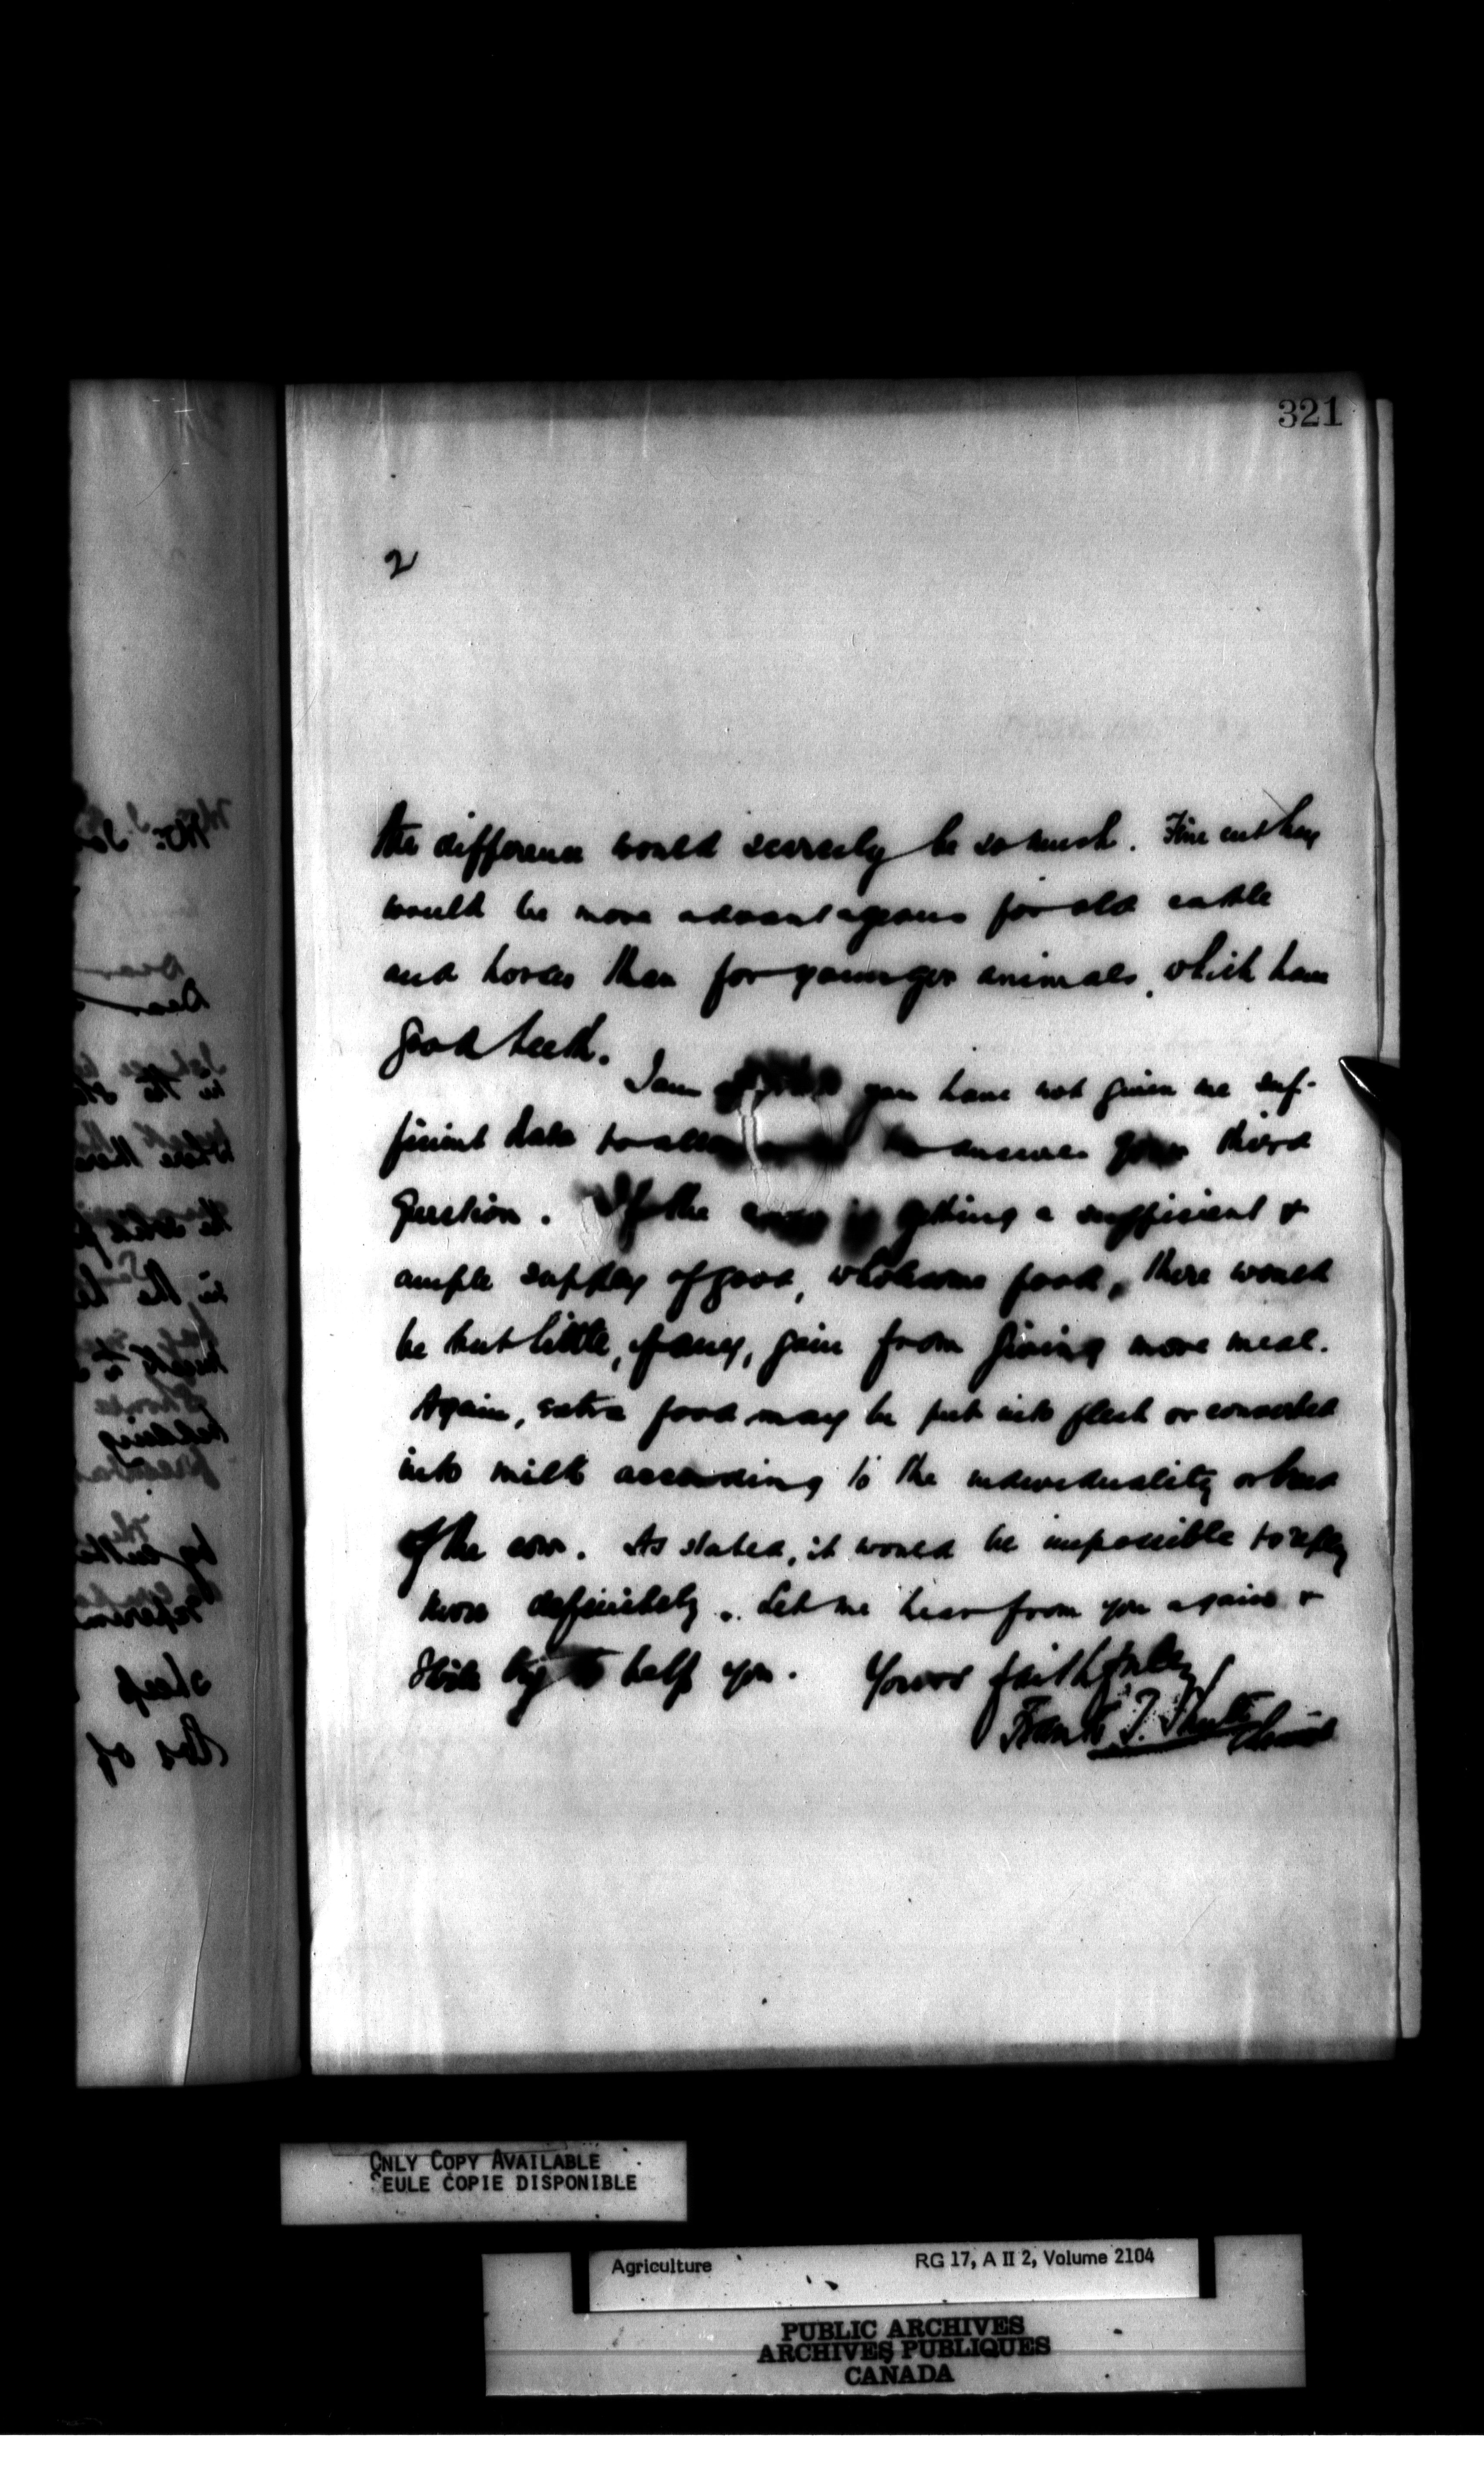 321
2
the difference would scarcely be so much. Fine cut hay
would be more advantageous for old cattle
and horses than for younger animals, which have
good teeth.
I am afraid you have not given me suf-
ficient data to allow to answer your third
question. If the cow is getting a sufficient &
ample supply of good, wholesome food, there would
be but little, if any, gain from giving more meal.
Again, extra food may be put into flesh or converted
into milk according to the individuality or breed
of the cow. As stated, it would be impossible to reply
more definitely. Let me hear from you again &
I will try to help you. Yours faithfully
Frank T. Shutt
ONLY COPY AVAILABLE
SEULE COPIE DISPONIBLE
Agriculture RG 17, A II 2, Volume 2104
PUBLIC ARCHIVES
ARCHIVES PUBLIQUES
CANADA